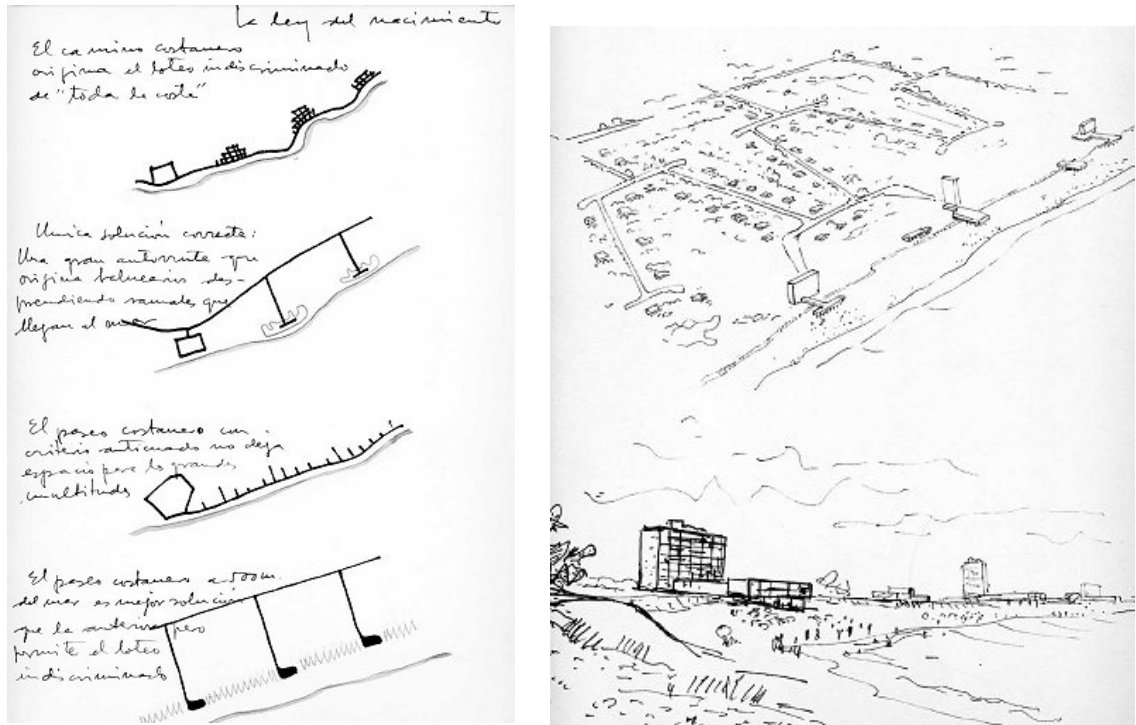 La ley del nacimiento
El camino costanero
origina el loteo indiscriminado
de "toda la costa"
Unica solución correcta:
Una gran autorruta que
origina balnearios des-
prendiendo ramales que
llegan al mar
El paseo costanero con
criterio anticuado no deja
espacio para las grandes
multitudes
El paseo costanero a 500m.
del mar es mejor solución
que la anterior pero
permite el loteo
indiscriminado